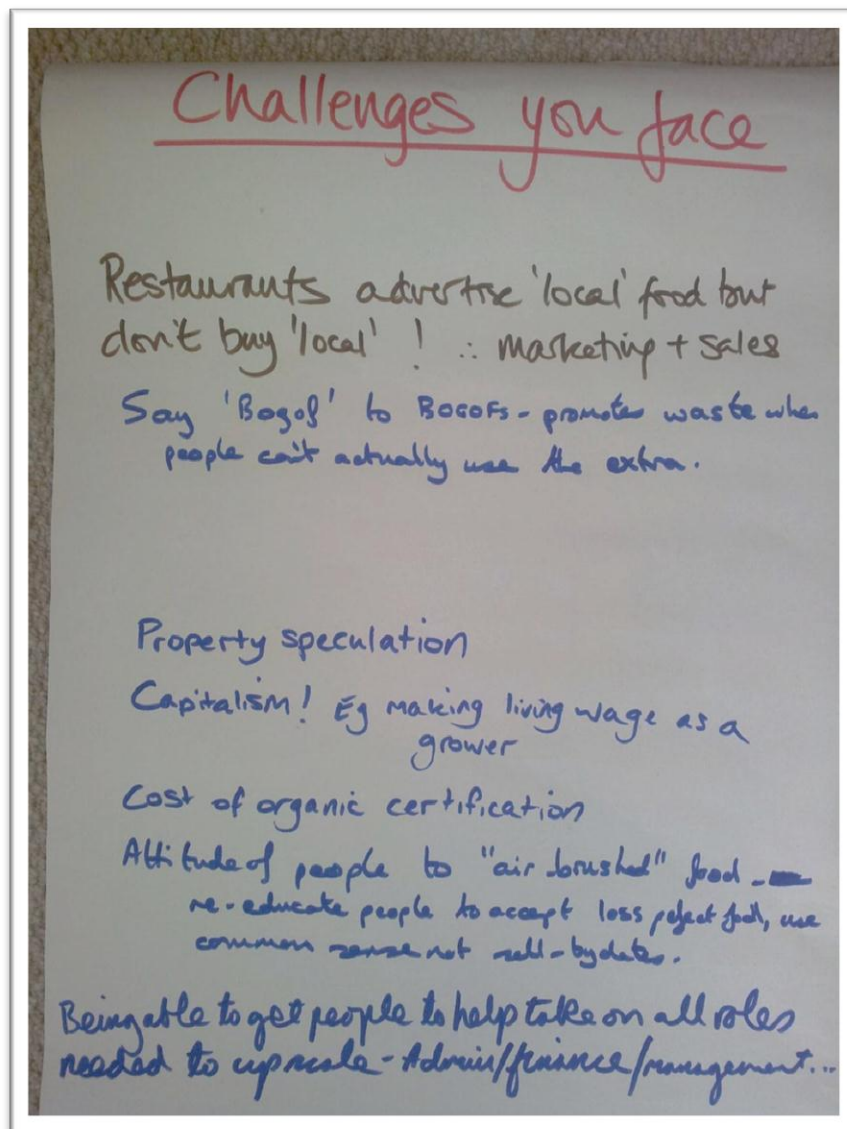 Challenges you face
Restaurants advertise 'local' food but
don't buy 'local' ! ∴ marketing + sales
Say 'Bogof' to BOGOFs - promotes waste when
people can't actually use the extra.
Property speculation
Capitalism! Eg making living wage as a
grower
Cost of organic certification
Attitude of people to "air brushed" food -
re-educate people to accept less perfect food, use
common sense not sell-by dates.
Being able to get people to help take on all roles
needed to upscale - Admin/finance/management...